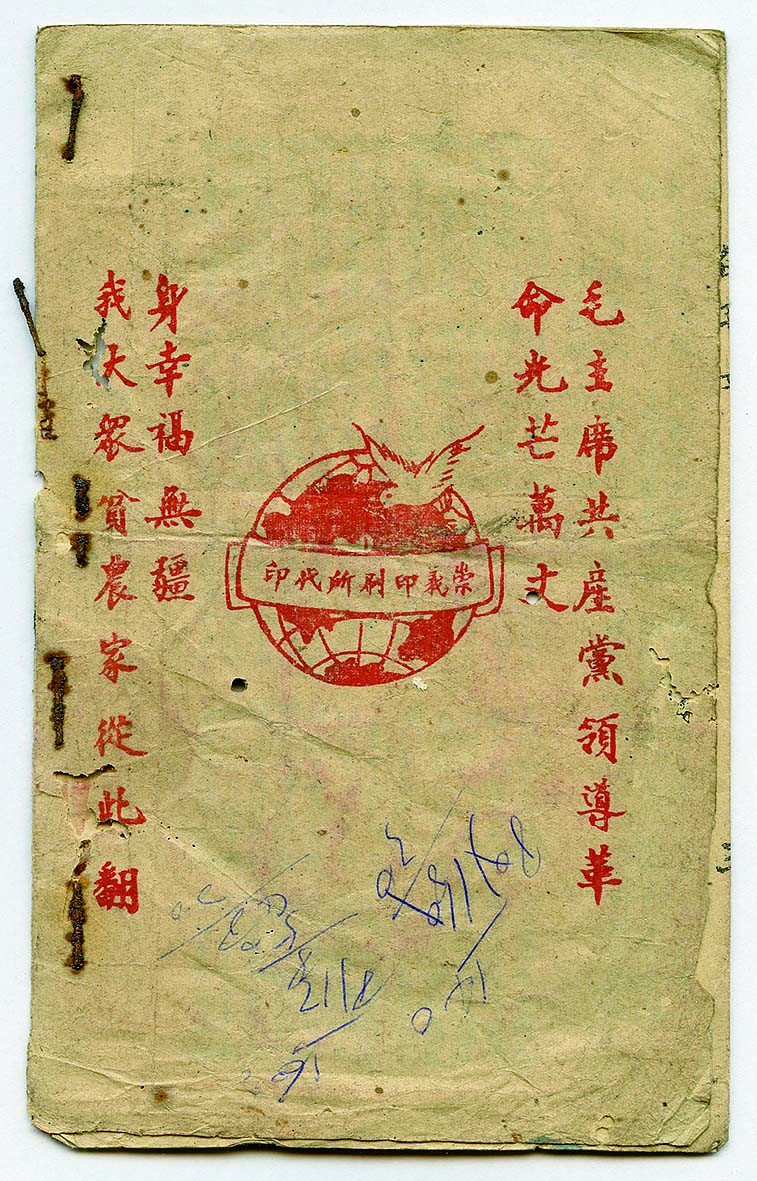 毛主席共產黨領導革
命光芒萬丈
崇義印刷所代印
我大眾貧農家從此翻
身幸福無疆